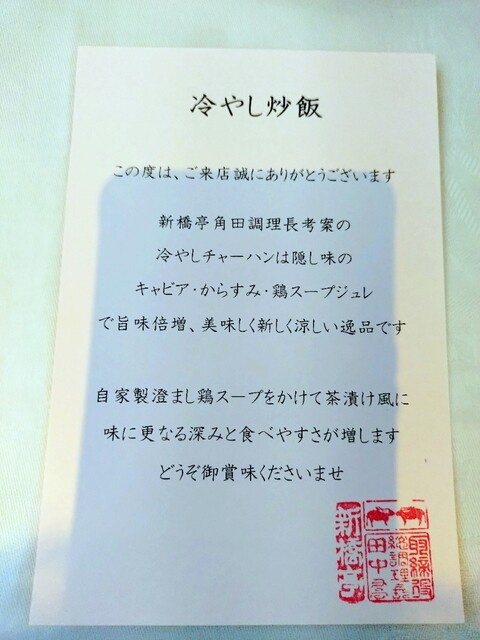 冷やし炒飯
この度は、ご来店誠にありがとうございます
新橋亭角田調理長考案の
冷やしチャーハンは隠し味の
キャビア・からすみ・鶏スープジュレ
で旨味倍増、美味しく新しく涼しい逸品です
自家製澄まし鶏スープをかけて茶漬け風に
味に更なる深みと食べやすさが増します
どうぞ御賞味くださいませ
新橋亭
取締役
田中